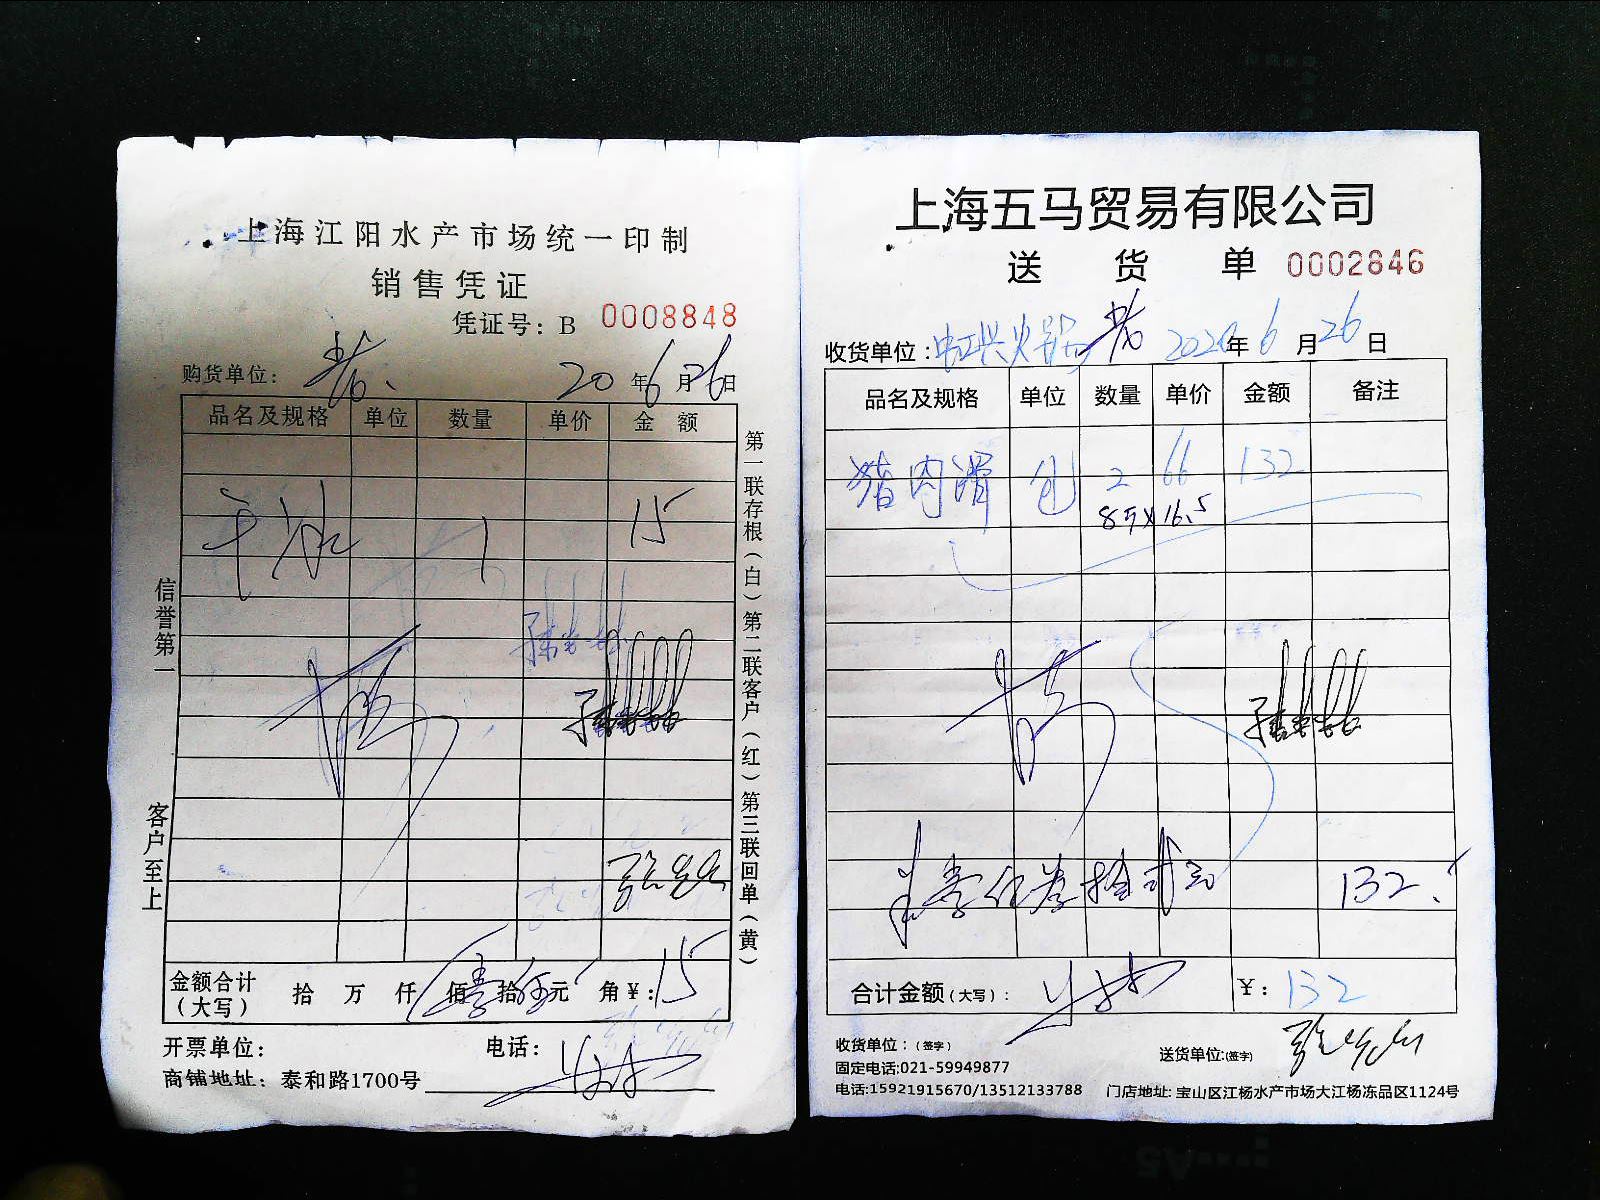 上海江阳水产市场统一印制
销售凭证
凭证号：B 0008848
购货单位：
20 年 6 月 26 日
品名及规格 单位 数量 单价 金额
干冰 1 15
信誉第一
客户至上
第一联存根（白）第二联客户（红）第三联回单（黄）
金额合计（大写） 拾 万 仟 佰 拾 元 角 ¥：15
开票单位： 电话：
商铺地址：泰和路1700号
上海五马贸易有限公司
送货单 0002846
收货单位： 2020年 6 月 26 日
品名及规格 单位 数量 单价 金额 备注
猪肉滑 包 2 66 132
8斤×16.5
壹佰叁拾贰元 132.
合计金额（大写）： ¥：132
收货单位：（签字） 送货单位:(签字)
固定电话:021-59949877
电话:15921915670/13512133788 门店地址: 宝山区江杨水产市场大江杨冻品区1124号